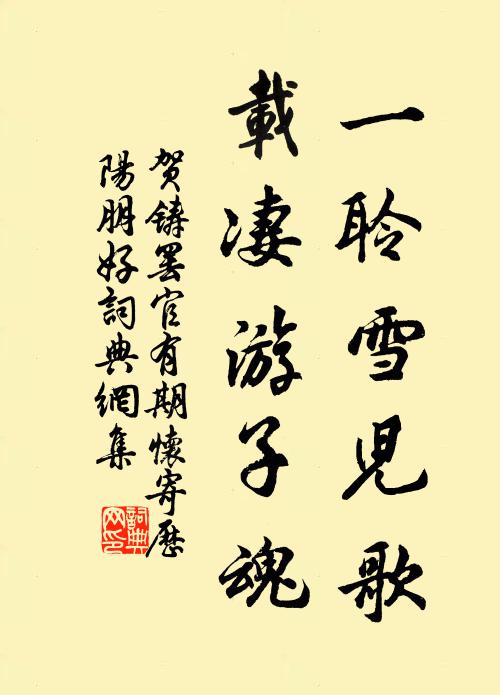 一聆雪児歌
載凄游子魂
贺鑄罢官有期懷寄歷
陽朋好詞典網集
詞典网印